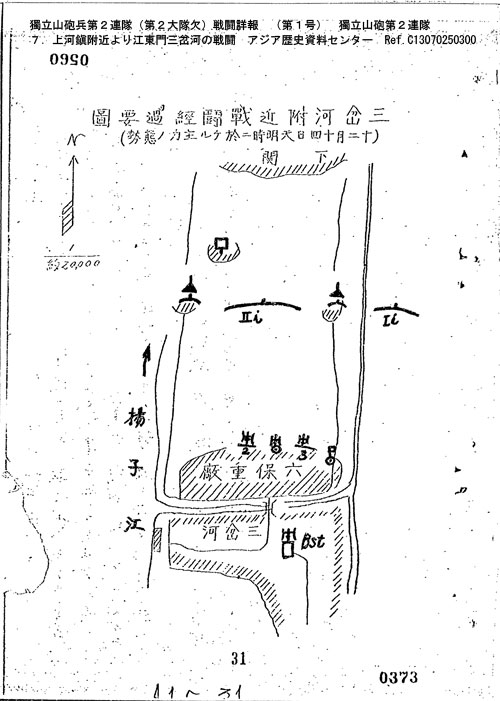 獨立山砲兵第２連隊（第２大隊欠）戦闘詳報　（第１号）　獨立山砲第２連隊
７．上河鎮附近より江東門三岔河の戦闘　アジア歴史資料センター　Ref.C13070250300
0560
圖要過經鬪戰近附河岔三
(勢態ノ力主ルケ於ニ時明天日四十月二十)
關　下
N
1
約20,000
Ⅱi
Ⅰi
揚
子
江
2
3
廠重保六
河岔三
Bst
31
0373